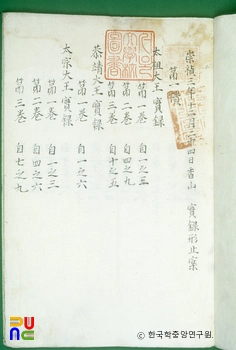 崇禎三年十二月二十四日香山 實錄形止案
第一樻
太祖大王實錄
第一卷 自一之三
第二卷 自四之九
第三卷 自十之十五
恭靖大王實錄
第一卷 自一之六
太宗大王實錄
第一卷 自一之三
第二卷 自四之六
第三卷 自七之九
PUNC
© 한국학중앙연구원